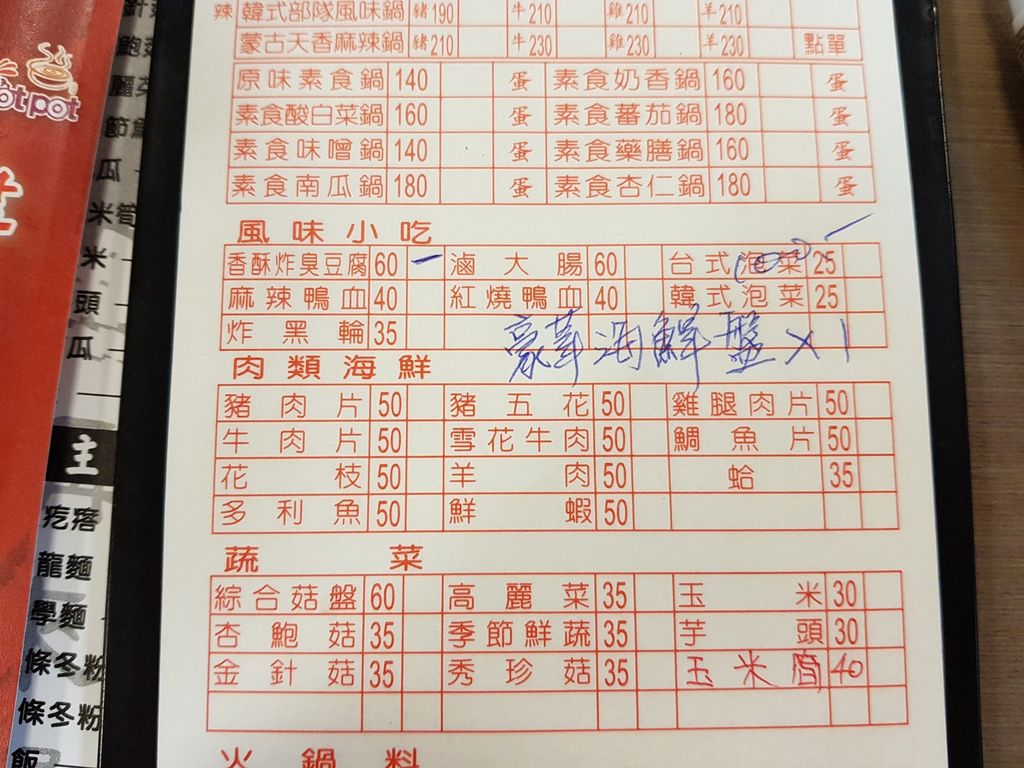 辣 韓式部隊風味鍋 豬190 牛210 雞210 羊210
蒙古天香麻辣鍋 豬210 牛230 雞230 羊230 點單
原味素食鍋 140 蛋 素食奶香鍋 160 蛋
素食酸白菜鍋 160 蛋 素食蕃茄鍋 180 蛋
素食味噌鍋 140 蛋 素食藥膳鍋 160 蛋
素食南瓜鍋 180 蛋 素食杏仁鍋 180 蛋
風味小吃
香酥炸臭豆腐 60 一 滷大腸 60 台式泡菜 25
麻辣鴨血 40 紅燒鴨血 40 韓式泡菜 25
炸黑輪 35
豪華海鮮盤 x 1
肉類海鮮
豬肉片 50 豬五花 50 雞腿肉片 50
牛肉片 50 雪花牛肉 50 鯛魚片 50
花枝 50 羊肉 50 蛤 35
多利魚 50 鮮蝦 50
蔬菜
綜合菇盤 60 高麗菜 35 玉米 30
杏鮑菇 35 季節鮮蔬 35 芋頭 30
金針菇 35 秀珍菇 35 玉米筒 40
火鍋料
ot pot
節鮮
瓜
米筍
米
頭
瓜
主
疙瘩
龍麵
學麵
條冬粉
條冬粉
飯